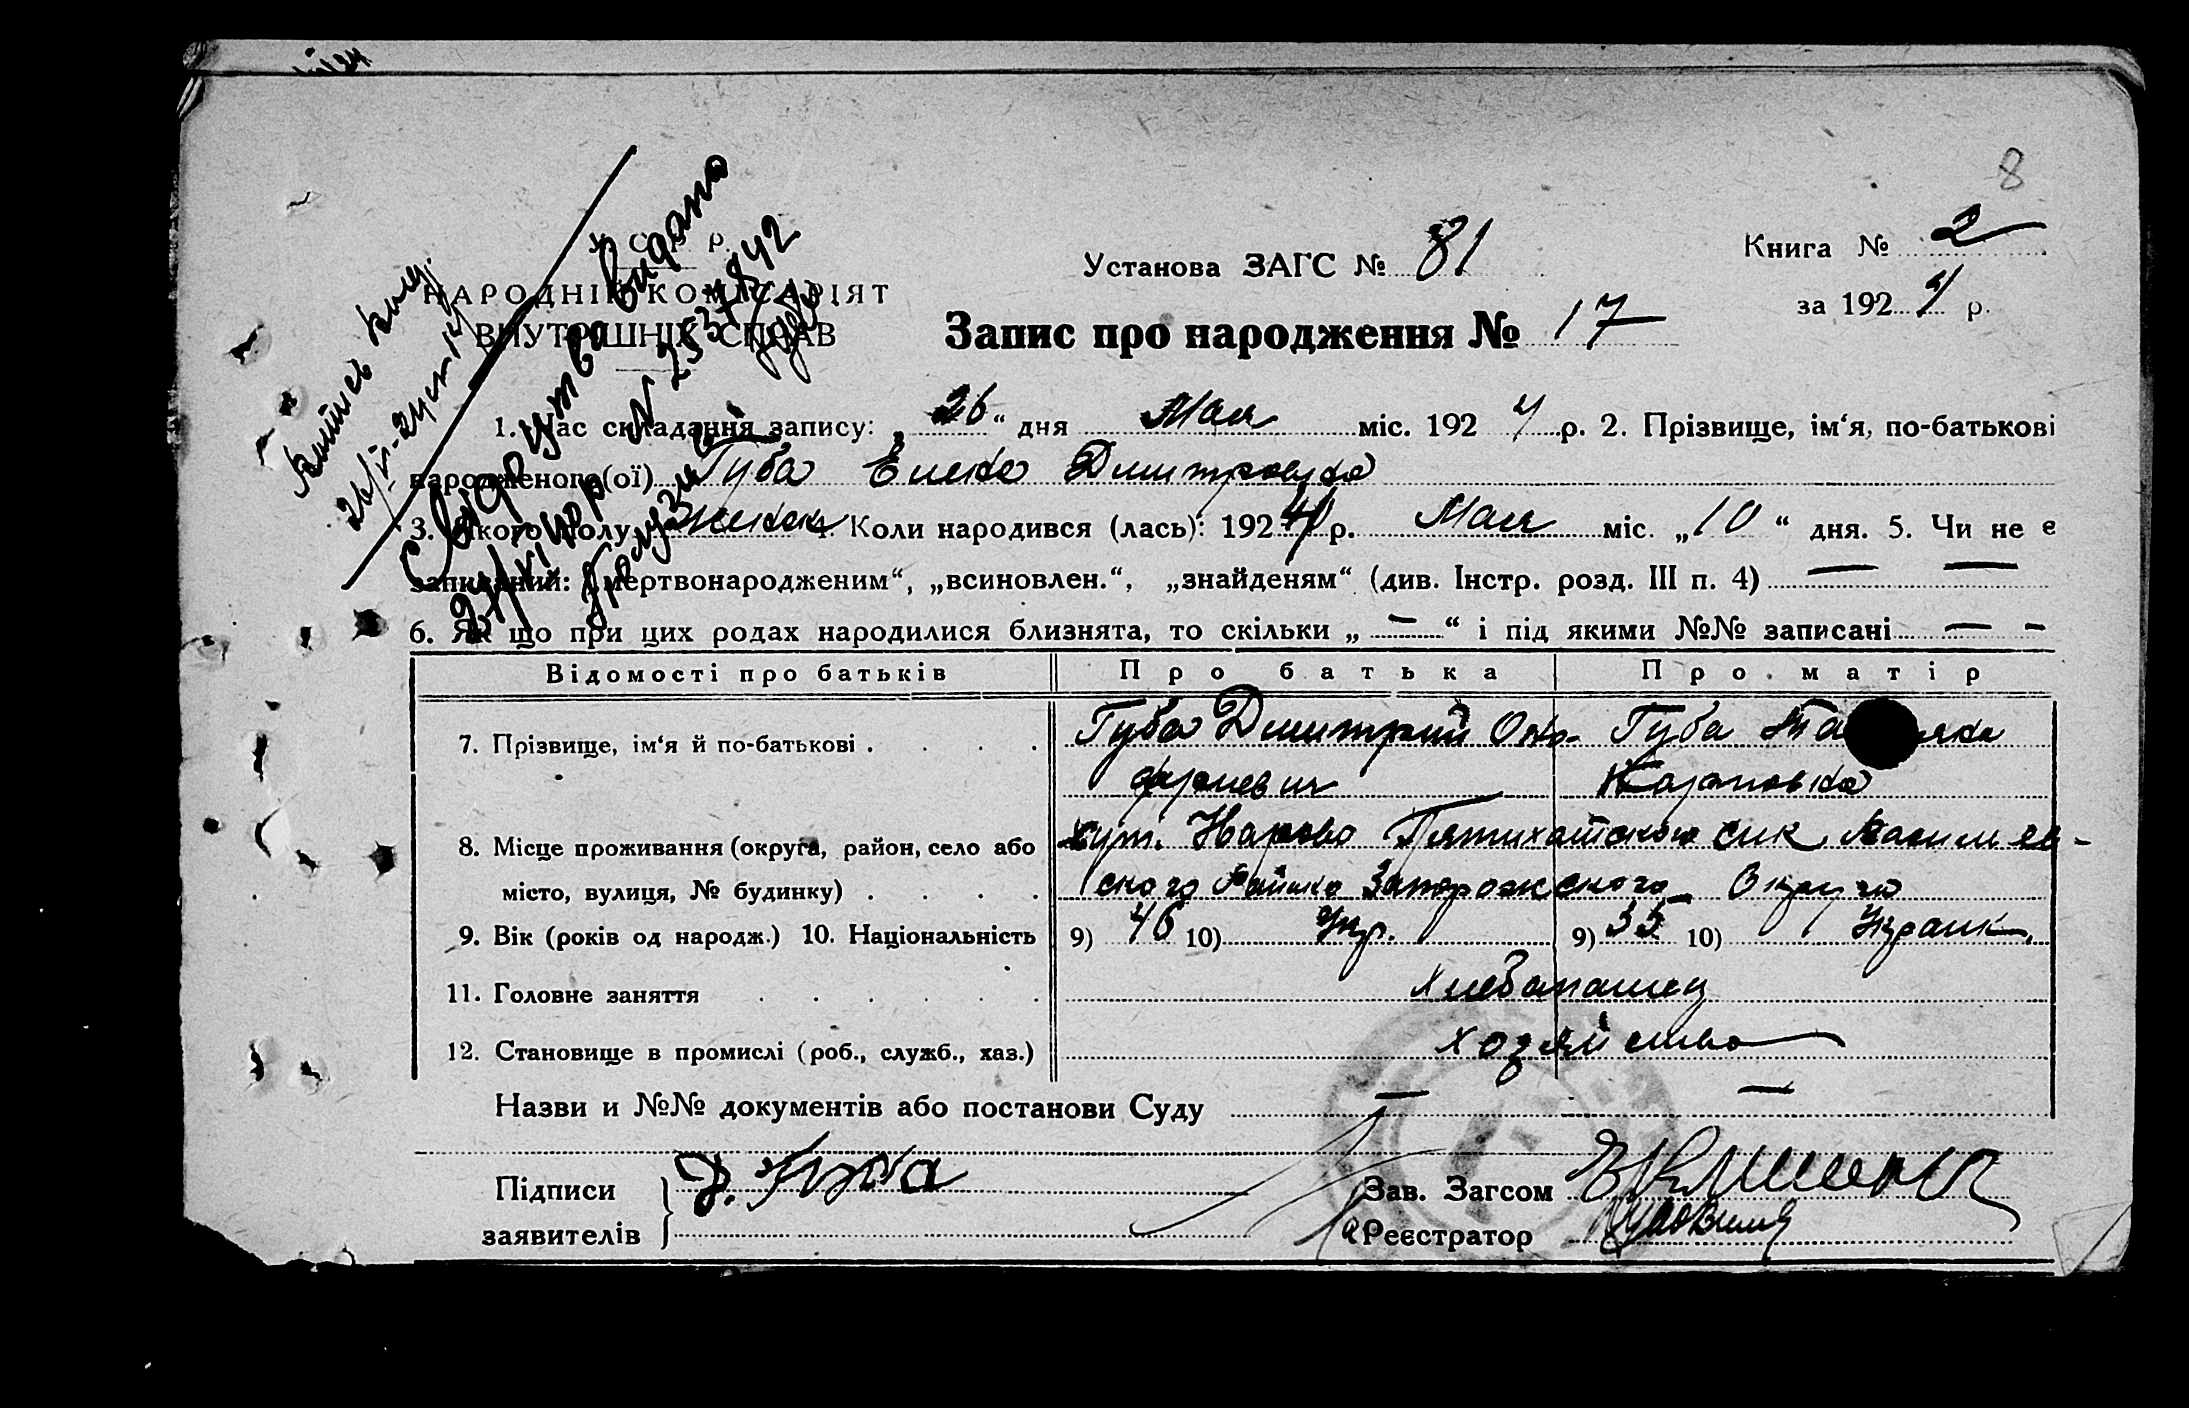 8
У. С. Р. Р.
НАРОДНІЙ КОМІСАРІЯТ
ВНУТРІШНІХ СПРАВ
Установа ЗАГС № 81
Книга № 2
за 1924 р.
Запис про народження № 17
Свідоцтво видано
1. Час складання запису: „26“ дня Мая міс. 1924 р. 2. Прізвище, ім‘я, по-батькові
народженого(ої) Губа Елена Дмитровна
3. Якого полу женск 4. Коли народився (лась): 1924 р. Мая міс. „10“ дня. 5. Чи не є
записаний: „мертвонародженим“, „всиновлен.“, „знайденям“ (див. Інстр. розд. III п. 4) — —
6. Як що при цих родах народилися близнята, то скільки „—“ і під якими №№ записані — -
Відомості про батьків Про батька Про матір
7. Прізвище, ім‘я й по-батькові . . . . Губа Дмитрий Оно- Губа
фриевич Карповна
8. Місце проживання (округа, район, село або хут. Пятихатского
місто, вулиця, № будинку) . . . . ского Района Запорожского Округа
9. Вік (років од народж.) 10. Національність 9) 46 10) Укр. 9) 35 10) Украин.
11. Головне заняття . . . . . . Хлебопашец
12. Становище в промислі (роб., служб., хаз.) хозяйство
Назви и №№ документів або постанови Суду — —
Підписи Д. Губа Зав. Загсом
заявителів Реєстратор